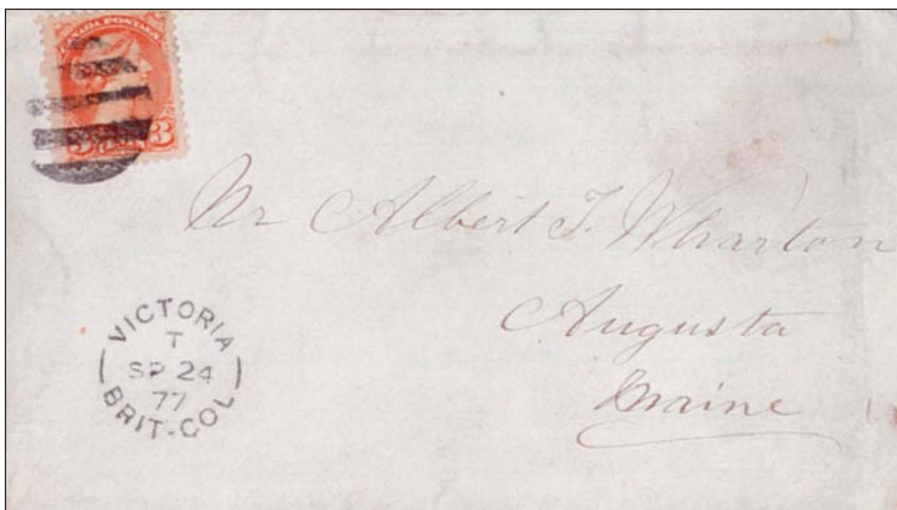 CANADA POSTAGE
3 3
Mr Albert T. Wharton
Augusta
Maine
VICTORIA
T
SP 24
77
BRIT-COL